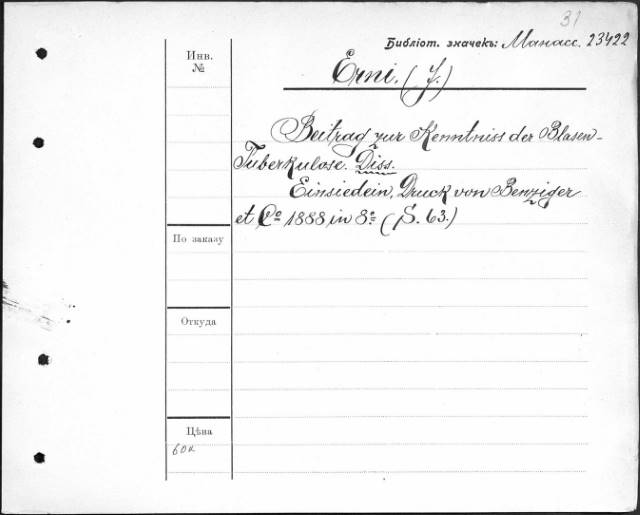 31
Библіот. значекъ: Манасс. 23422
Инв.
№
Erni. (J.)
Beitrag zur Kenntniss der Blasen-
Tuberkulose. Diss.
Einsiedeln, Druck von Benziger
et Co 1888 in 8o (S. 63.)
По заказу
Откуда
Цѣна
60к